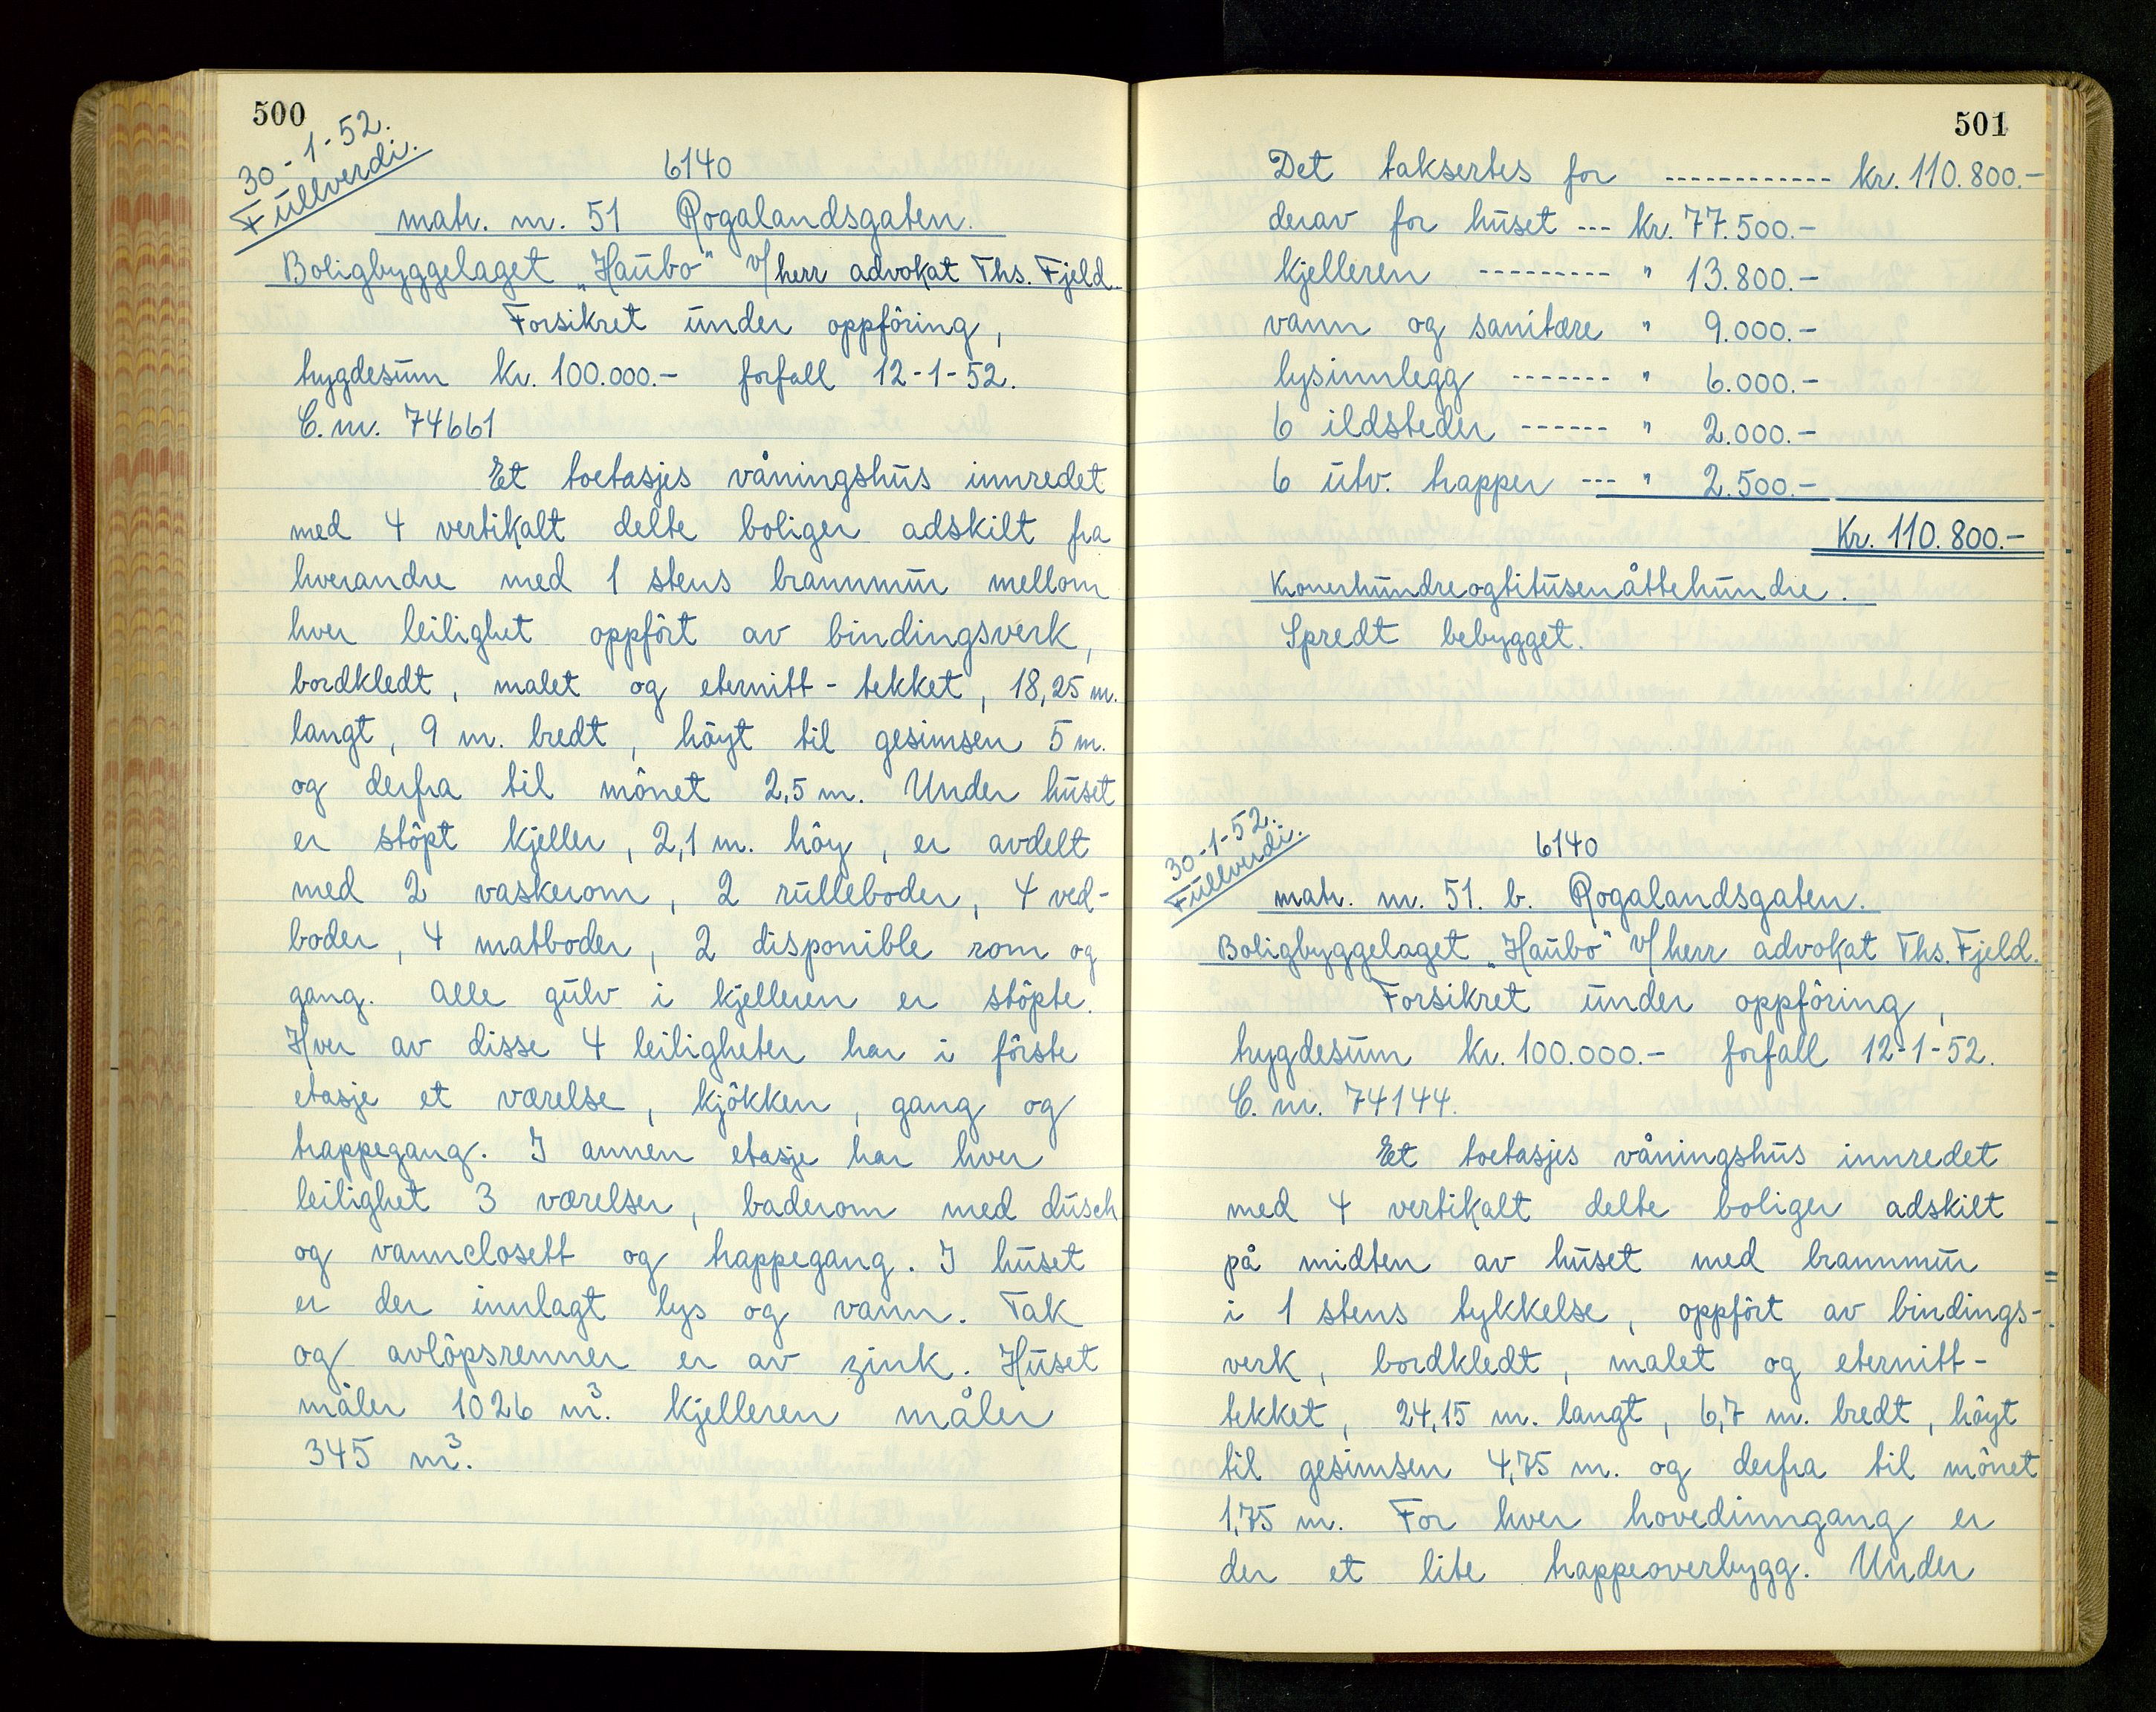 500
30-1-52.
Fullverdi.
6140
matr. nr. 51 Rogalandsgaten.
Boligbyggelaget „Haubo" v/herr advokat Ths. Fjeld.
Forsikret under oppföring,
trygdesum kr. 100.000.- forfall 12-1-52.
C. nr. 74661
Et toetasjes våningshus innredet
med 4 vertikalt delte boliger adskilt fra
hverandre med 1 stens brannmur mellom
hver leilighet oppfört av bindingsverk,
bordkledt, malet og eternitt-tekket, 18,25 m.
langt, 9 m. bredt, höyt til gesimsen 5 m.
og derfra til mönet 2,5 m. Under huset
er stöpt kjeller, 2,1 m. höy, er avdelt
med 2 vaskerom, 2 rulleboder, 4 ved-
boder, 4 matboder, 2 disponible rom og
gang. Alle gulv i kjelleren er stöpte.
Hver av disse 4 leiligheter har i förste
etasje et værelse, kjökken, gang og
trappegang. I annen etasje har hver
leilighet 3 værelser, baderom med dusch
og vannclosett og trappegang. I huset
er der innlagt lys og vann. Tak
og avlöpsrenner er av zink. Huset
måler 1026 m³. kjelleren måler
345 m³.
501
Det taksertes for ------------ kr. 110.800.-
derav for huset --- kr. 77.500.-
kjelleren --------- " 13.800.-
vann og sanitære " 9.000.-
lysinnlegg ------- " 6.000.-
6 ildsteder ------ " 2.000.-
6 utv. trapper --- " 2.500.-
Kr. 110.800.-
Kronerhundreogtitusenåttehundre.
Spredt bebygget.
30-1-52.
Fullverdi.
6140
matr. nr. 51. b. Rogalandsgaten.
Boligbyggelaget „Haubo" v/herr advokat Ths. Fjeld.
Forsikret under oppföring,
trygdesum kr. 100.000.- forfall 12-1-52.
C. nr. 74144.
Et toetasjes våningshus innredet
med 4 vertikalt delte boliger adskilt
på midten av huset med brannmur
i 1 stens tykkelse, oppfört av bindings-
verk, bordkledt, malet og eternitt-
tekket, 24,15 m. langt, 6,7 m. bredt, höyt
til gesimsen 4,75 m. og derfra til mönet
1,75 m. For hver hovedinngang er
der et lite trappeoverbygg. Under